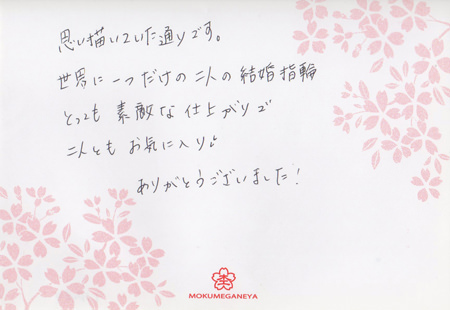 思い描いていた通りです。
世界に一つだけの二人の結婚指輪
とっても 素敵な仕上がりで
二人とも お気に入り♪
ありがとうございました!
MOKUMEGANEYA